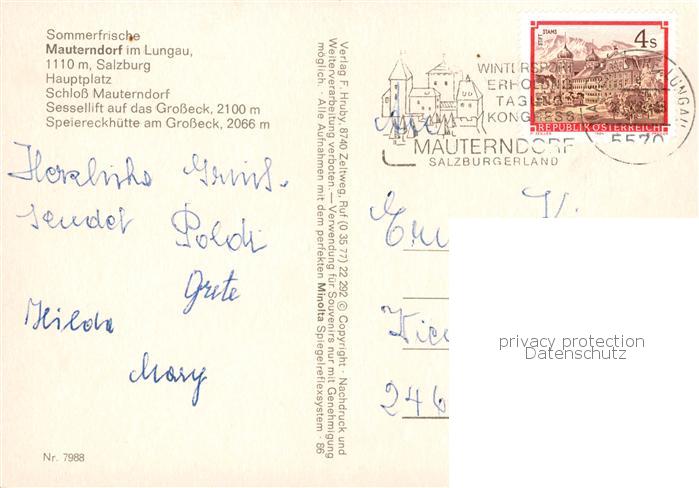 Sommerfrische
Mauterndorf im Lungau,
1110 m, Salzburg
Hauptplatz
Schloß Mauterndorf
Sessellift auf das Großeck, 2100 m
Speiereckhütte am Großeck, 2066 m
Herzliche Grüße
sendet Poldi
Grete
Hilda
Mary
Nr. 7988
Verlag F. Hruby, 8740 Zeltweg, Ruf (0 35 77) 22 292 © Copyright · Nachdruck und
Weiterverarbeitung verboten. — Verwendung für Souvenirs nur mit Genehmigung
möglich. · Alle Aufnahmen mit dem perfekten Minolta Spiegelreflexsystem · 86
WINTERSPORT
ERHOLUNG
TAGUNG
KONGRESS
MAUTERNDORF
SALZBURGERLAND
STIFT STAMS
4 S
REPUBLIK ÖSTERREICH
LUNGAU
5570
246
privacy protection
Datenschutz